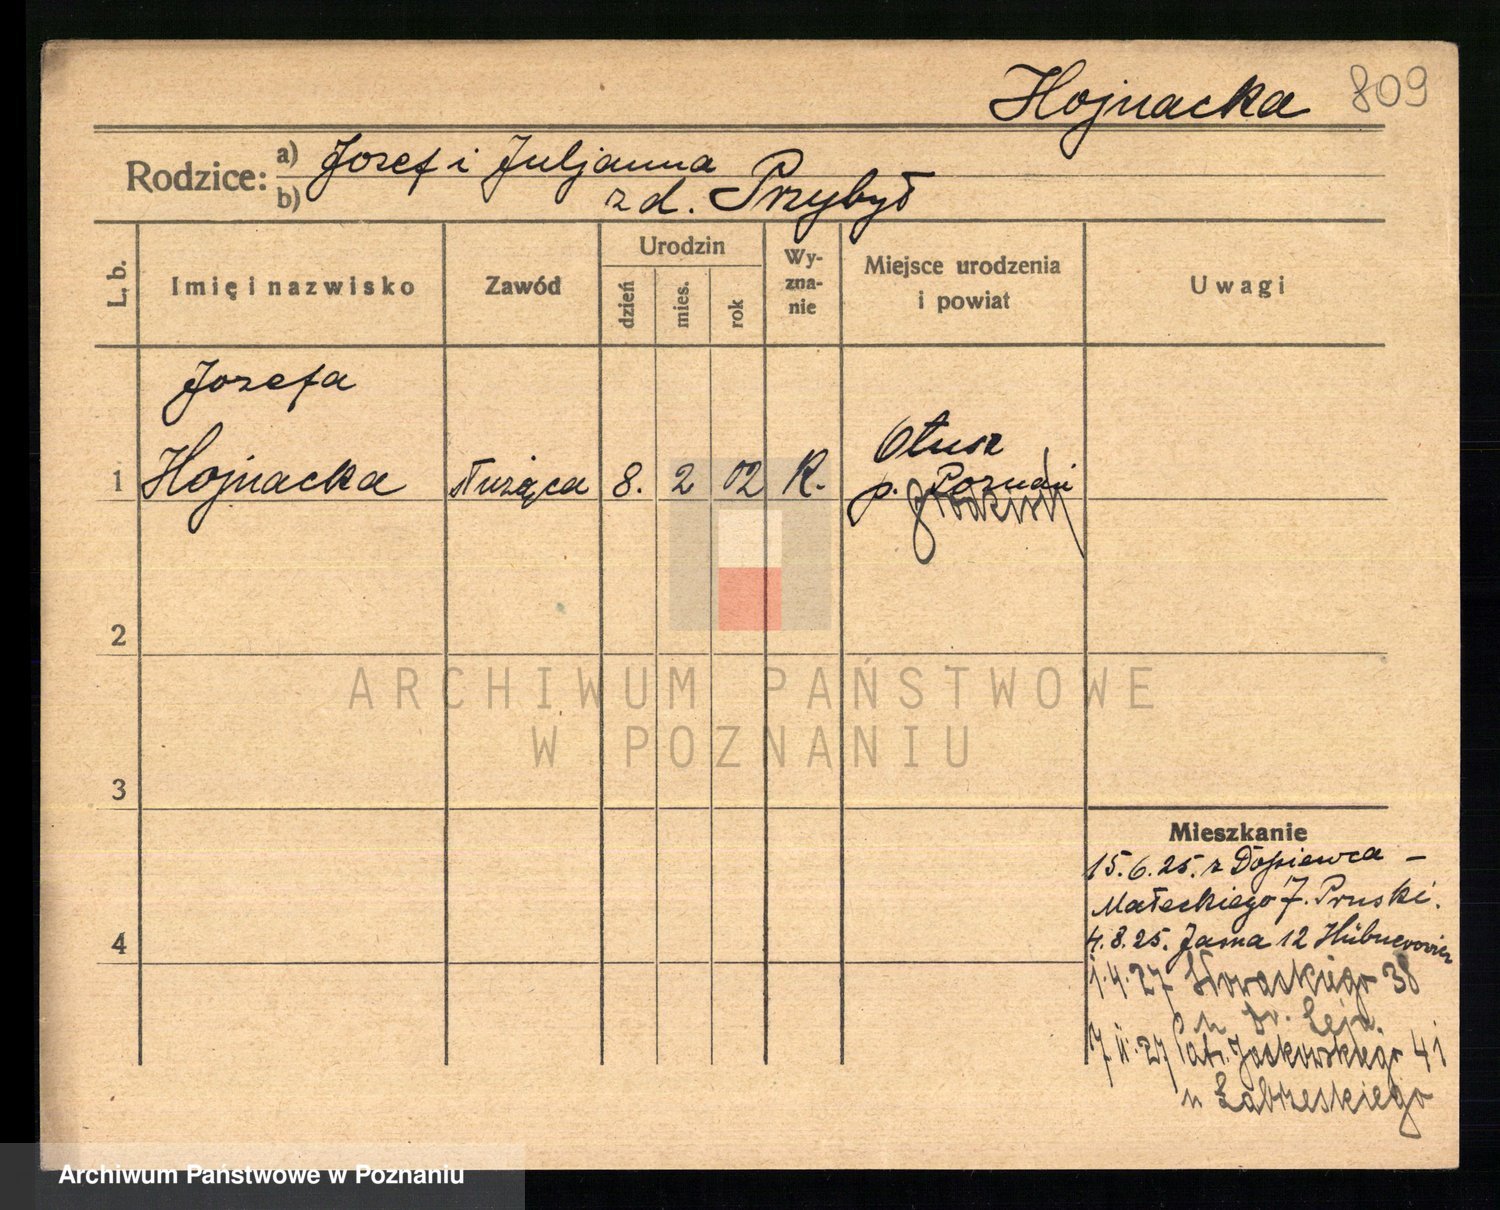 Hojnacka 809
Rodzice: a) Jozef i Juljanna
b) z d. Przybył
L. b. Imię i nazwisko Zawód Urodzin dzień mies. rok Wy-zna-nie Miejsce urodzenia i powiat Uwagi
Jozefa
1 Hojnacka służąca 8. 2 02 R. Otusz
p. Poznań
Grodzisk
2
ARCHIWUM PAŃSTWOWE
W POZNANIU
3
Mieszkanie
15.6.25. z Dopiewca –
Małeckiego 7. Pruski.
4
4.8.25. Jasna 12
1.4.27 Słowackiego 38
u dr. Leja.
Patr. Jackowskiego 41
u Zabrzeskiego
Archiwum Państwowe w Poznaniu